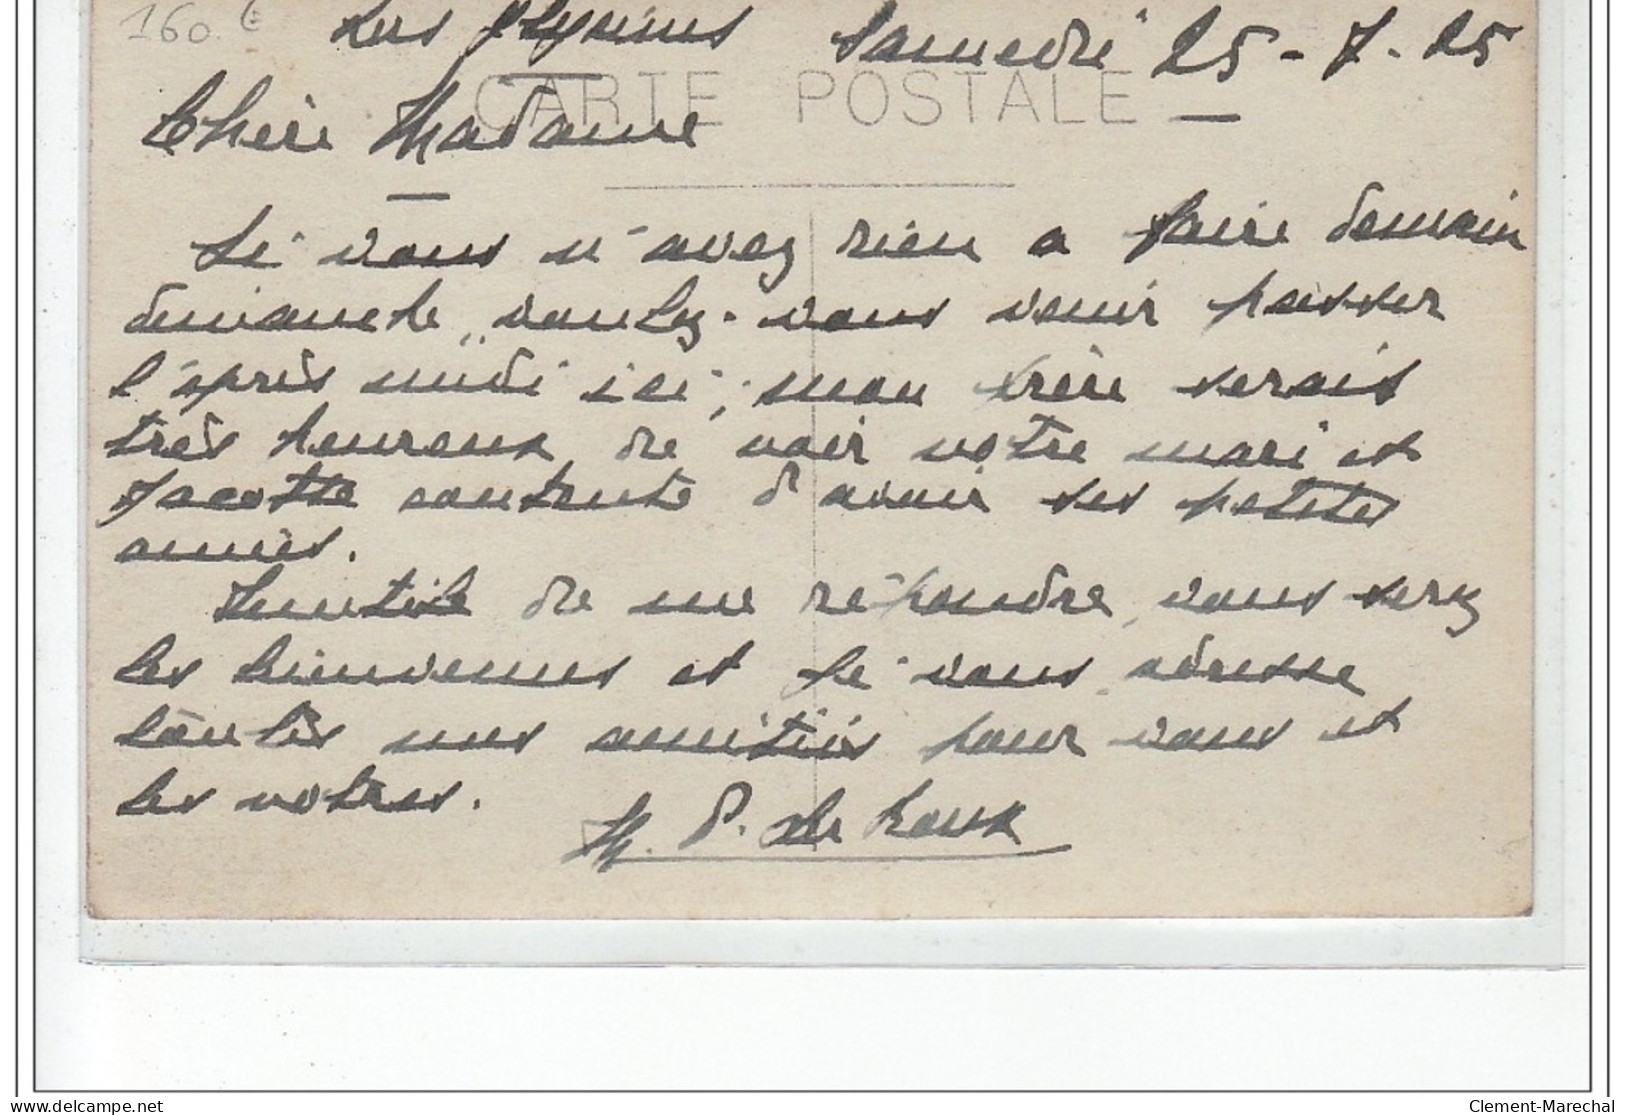 160 €
Les Glycines Samedi 25-7-25
CARTE POSTALE
Chère Madame
Si vous n'avez rien a faire demain
dimanche, voulez-vous venir passer
l'après midi ici; mon frère serais
très heureux de voir votre mari et
Jacotte contente d'avoir ses petites
amies.
Inutile de me répondre, vous serez
les bienvenus et je vous adresse
toutes mes amitiés pour vous et
les votres.
P. de Roux
Clement-Marechal